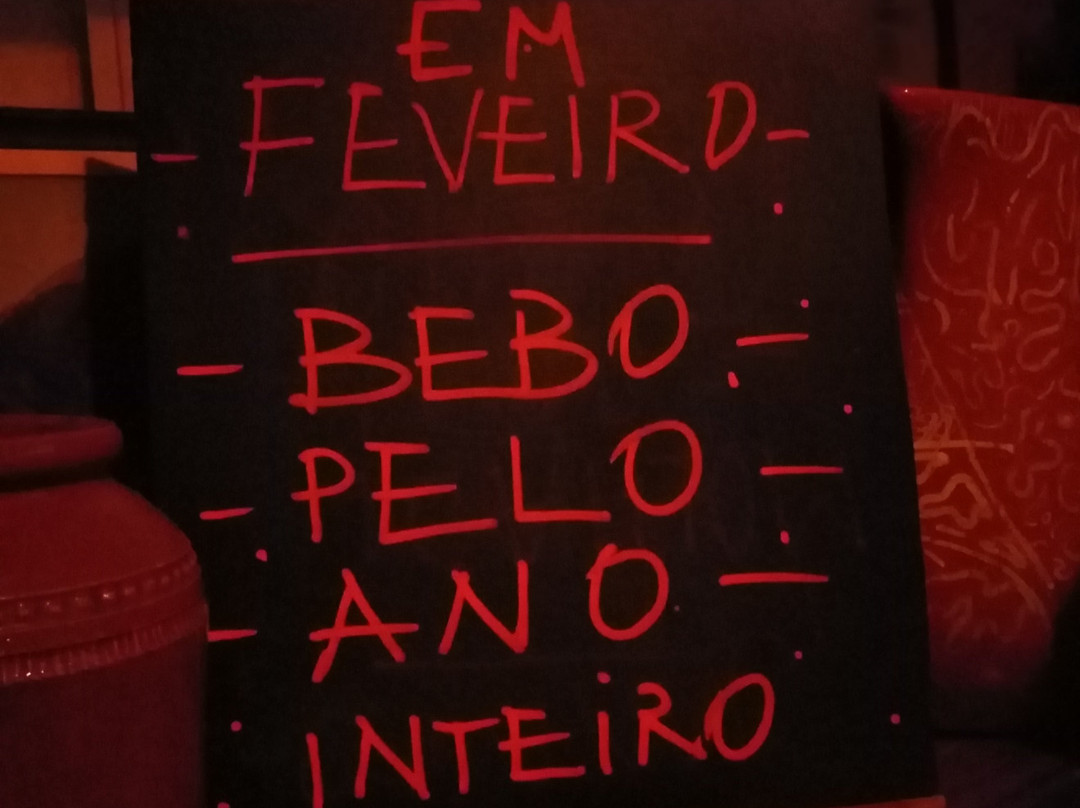 EM
- FEVEIRO -
- BEBO -
- PELO -
- ANO -
INTEiRO